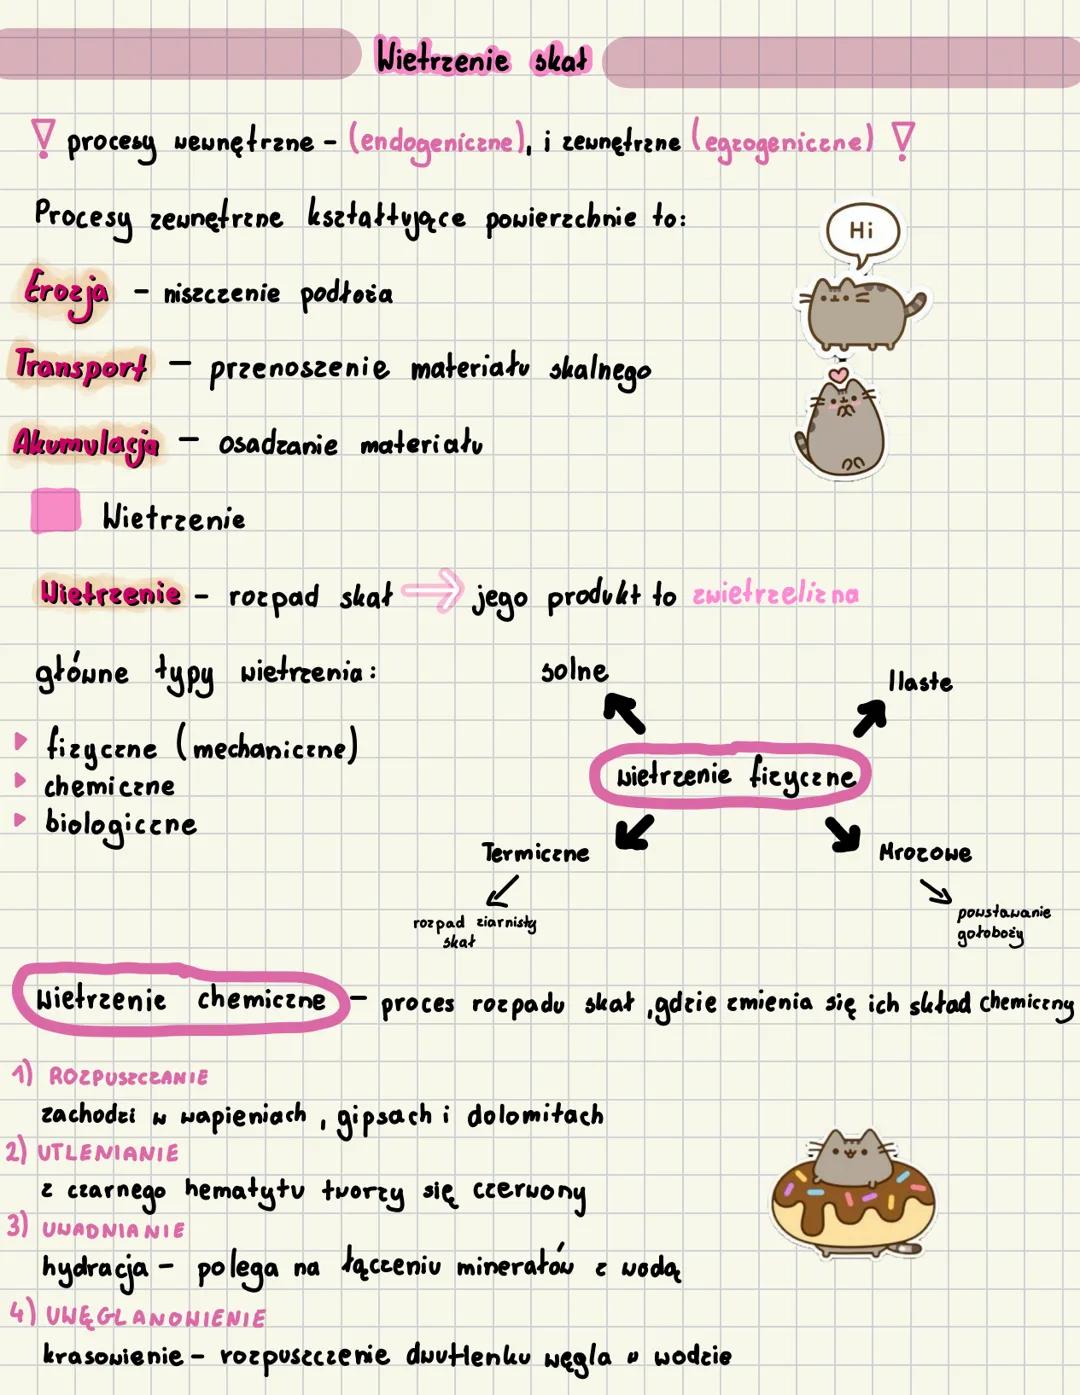 Wietrzenie skał
procesy wewnętrzne - (endogeniczne), i zewnętrzne (egzogeniczne)
Procesy zewnętrzne kształtujące powierzchnie to:
Hi
Erozja - niszczenie podłoża
Transport - przenoszenie materiału skalnego
Akumulacja - osadzanie materiału
Wietrzenie
Wietrzenie - rozpad skał ⇒ jego produkt to zwietrzelizna
główne typy wietrzenia:
solne
Ilaste
fizyczne (mechaniczne)
wietrzenie fizyczne
chemiczne
biologiczne
Termiczne
Mrozowe
rozpad ziarnisty
skał
powstawanie
gołoboży
Wietrzenie chemiczne - proces rozpadu skał, gdzie zmienia się ich skład chemiczny
1) ROZPUSZCZANIE
zachodzi w wapieniach, gipsach i dolomitach
2) UTLENIANIE
z czarnego hematytu tworzy się czerwony
3) UWADNIANIE
hydracja - polega na łączeniu minerałów z wodą
4) UWĘGLANOWIENIE
krasowienie - rozpuszczenie dwutlenku węgla w wodzie